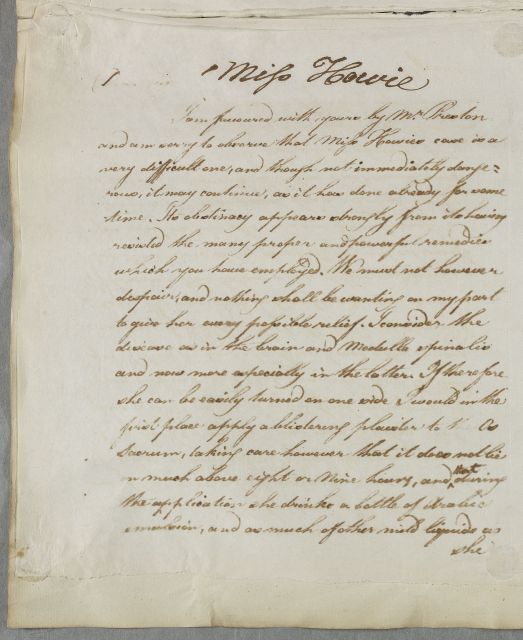 Miss Howie
I am favoured with yours by Mr. Preston
and am sorry to observe that Miss Howies case is a
very difficult one, and though not immediately dange=
rous, it may continue, as it has done already for some
time. Its obstinacy appears strongly from its having
resisted the many proper and powerful remedies
which you have employed. We must not however
despair, and nothing shall be wanting on my part
to give her every possible relief. I consider the
disease as in the brain and Medulla spinalis
and now more especially in the latter. If therefore
she can be easily turned on one side I would in the
first place apply a blistering plaister to Os
Sacrum, taking care however that it does not lie
on much above eight or Nine hours, and that during
the application she drinks a bottle of Arabic
emulsion, and as much of other mild liquids as
she